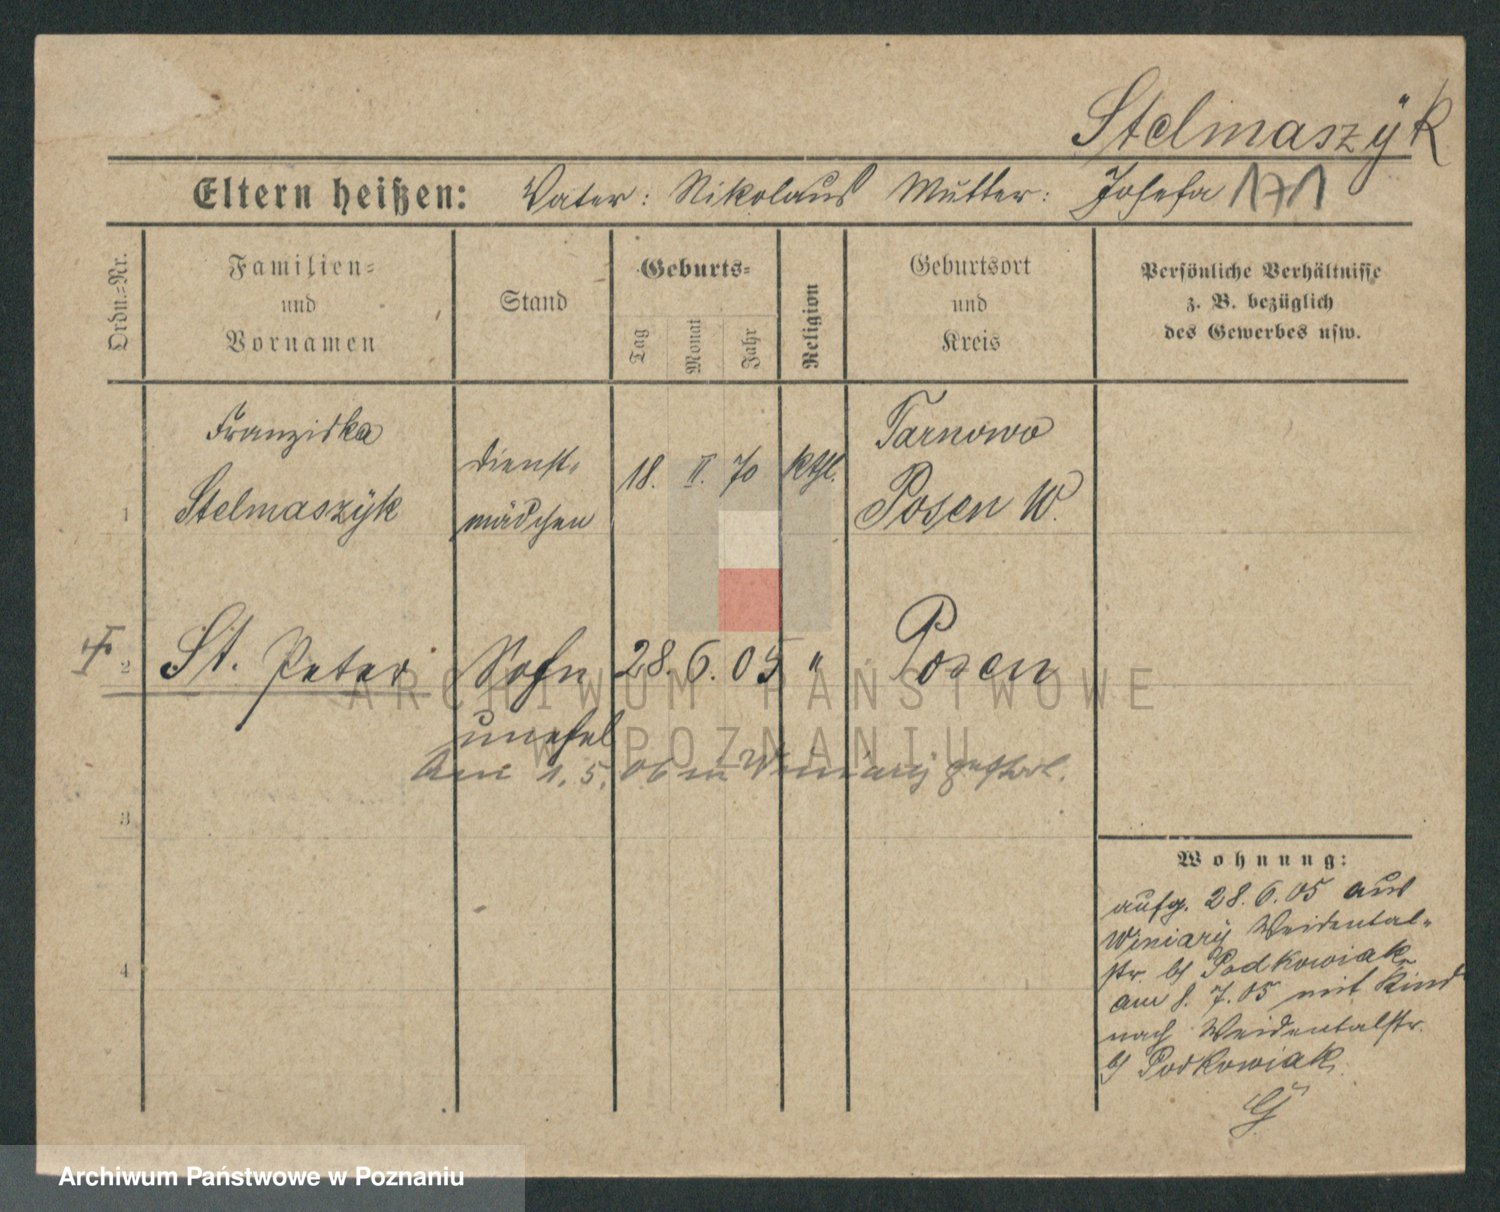 Stelmaszÿk
Eltern heißen: Vater: Nikolaus Mutter: Josefa 171
Ordn.-Nr.
Familien-
und
Vornamen
Stand
Geburts-
Tag
Monat
Jahr
Religion
Geburtsort
und
Kreis
Persönliche Verhältnisse
z. B. bezüglich
des Gewerbes usw.
1
Franziska
Stelmaszÿk
Dienst-
mädchen
18. II. 70
kthl.
Tarnowo
Posen W.
2
St. Peter
Sohn
unehel
28. 6. 05
"
Posen
Am 1. 5. 06 in Winiary gestorb.
3
4
Wohnung:
aufg. 28. 6. 05 aus
Winiarÿ Weidental-
str. b/ Podkowiak
am 8. 7. 05 mit Kind
nach Weidentalstr.
b/ Podkowiak.
ARCHIWUM PAŃSTWOWE
W POZNANIU
Archiwum Państwowe w Poznaniu